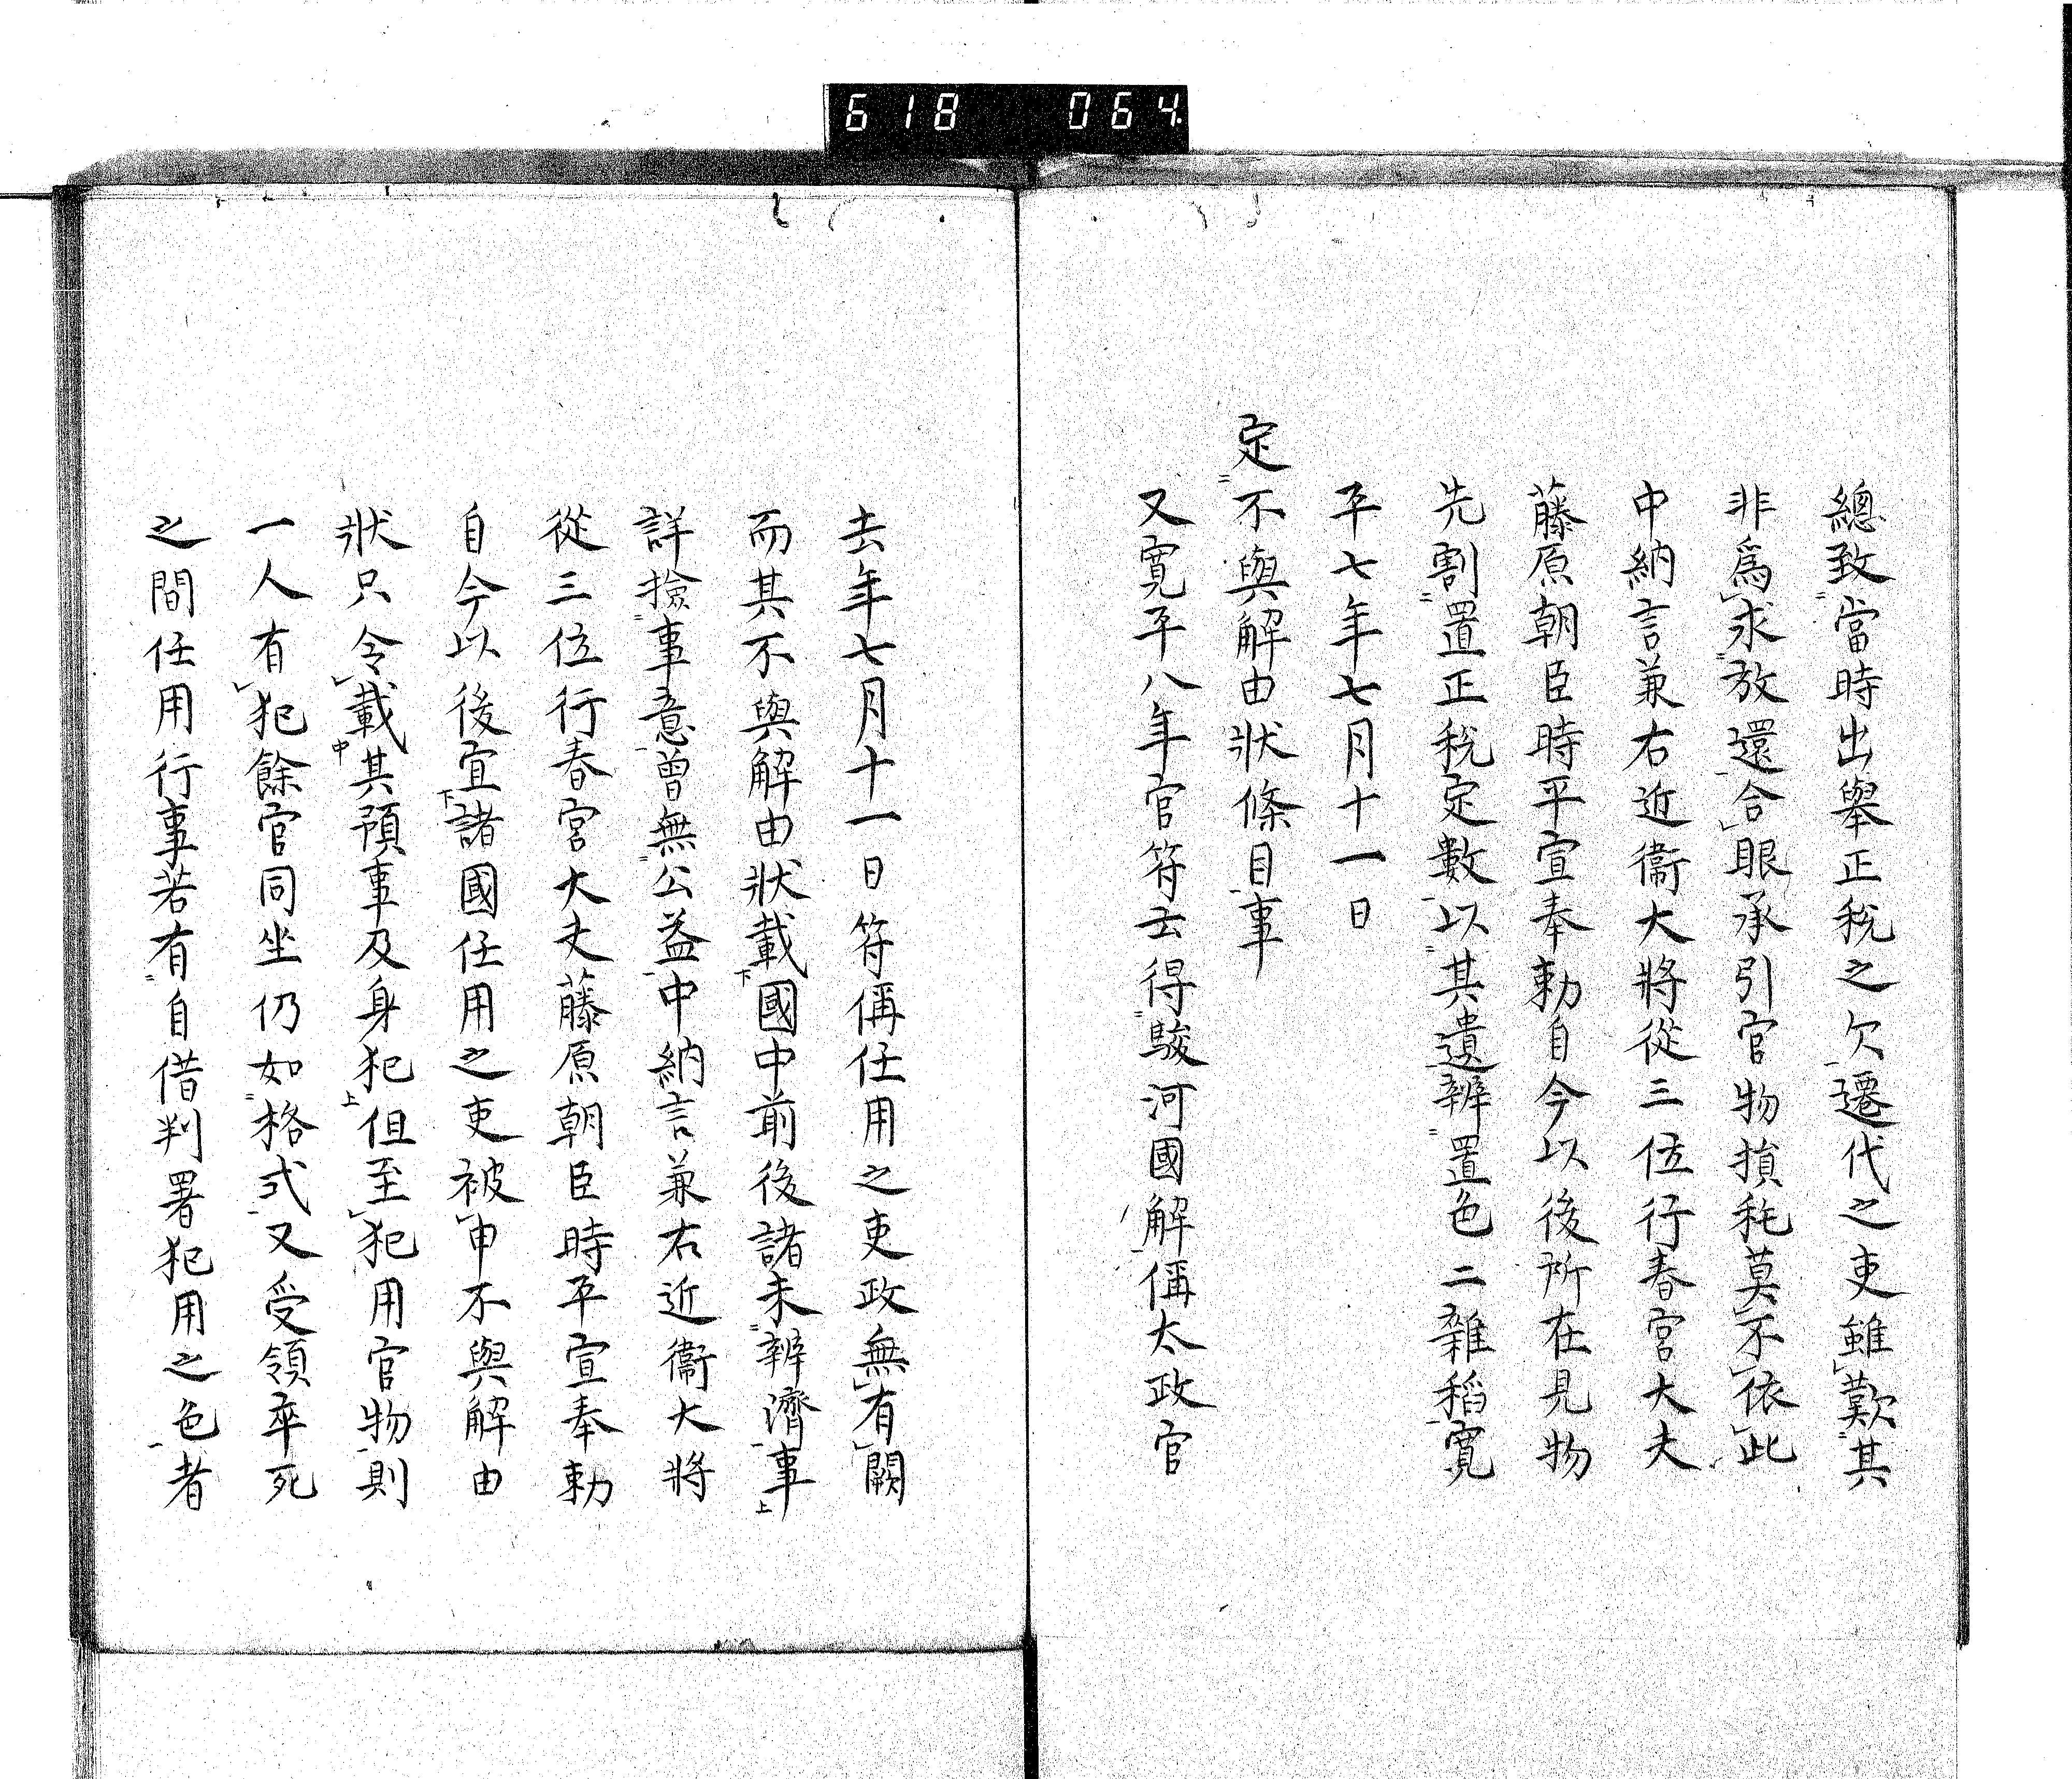 618 064
總致當時出舉正税之欠遷代之吏雖歎其
非爲求放還合眼承引官物損秏莫不依此
中納言兼右近衞大將從三位行春宮大夫
藤原朝臣時平宣奉勅自今以後所在見物
先割置正税定數以其遺辨置色二雜稻寛
平七年七月十一日
定不與解由狀條目事
又寛平八年官符云得駿河國解偁太政官
去年七月十一日符偁任用之吏政無有闕
而其不與解由狀載國中前後諸未辨濟事
詳撿事意曾無公益中納言兼右近衞大將
從三位行春宮大夫藤原朝臣時平宣奉勅
自今以後宜諸國任用之吏被申不與解由
狀只令載其預事及身犯但至犯用官物則
一人有犯餘官同坐仍如格式又受領卒死
之間任用行事若有自借判署犯用之色者